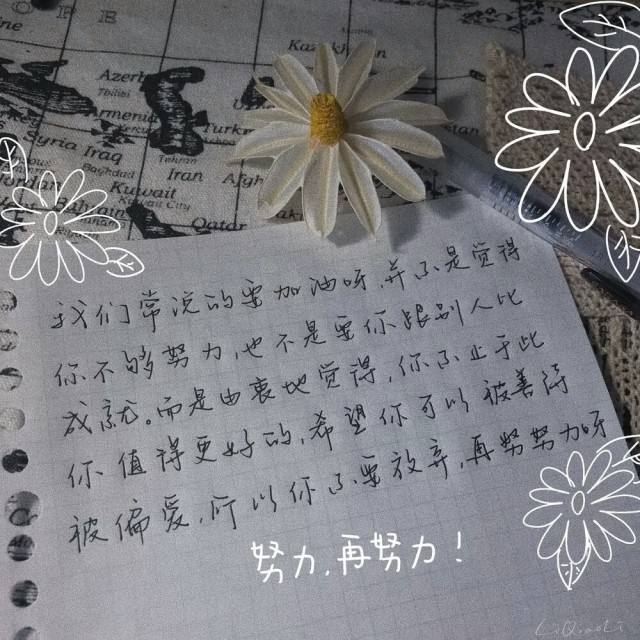 Kazakhstan
Azerb
Tbilisi
Armenia
Turkm
Syria
Iraq
Tehran
Baghdad
Iran
Afgh
Kuwait
Kuwait City
Bahra
Qatar
我们常说的要加油呀,并不是觉得
你不够努力,也不是要你跟别人比
成就。而是由衷地觉得,你不止于此
你值得更好的,希望你可以被善待
被偏爱,所以你不要放弃,再努努力呀
努力,再努力!